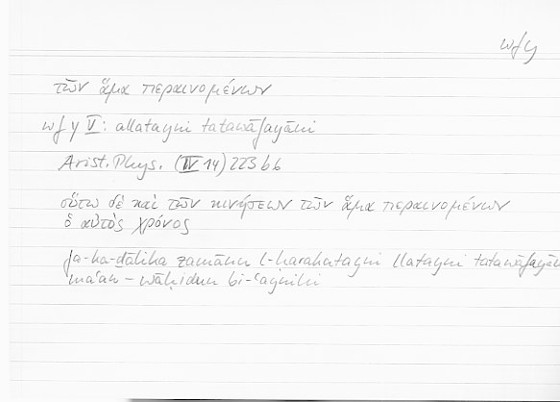 wfy
τῶν ἅμα περαινομένων
wfy V: allatayni tatawāfayāni
Arist. Phys. (IV 14) 223 b 6
οὕτω δὲ καὶ τῶν κινήσεων τῶν ἅμα περαινομένων
ὁ αὐτὸς χρόνος
fa-ka-ḏālika zamānu l-ḥarakatayni llatayni tatawāfayāni
maʿan – wāḥidun bi-ʿaynihi